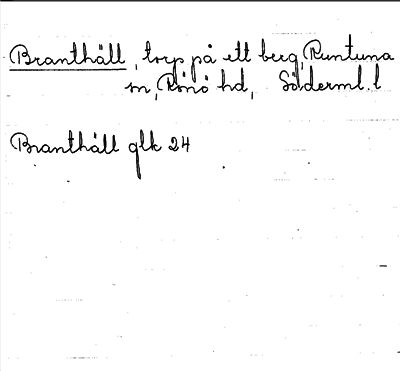 Branthåll, torp på ett berg, Runtuna
sn, Rönö hd, Söderml. l
Branthåll glk 24